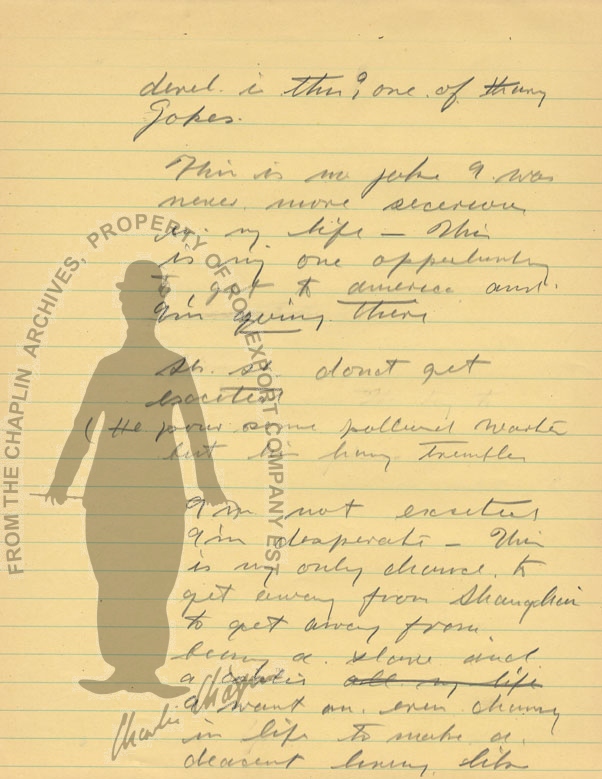 devil. is this? one of
Jokes.
This is no joke I was
never more
in my life – This
is my one oppertunity
to get to america and.
I'm going there
sh. sh. donat get
excited
( He pour some water
but his trembles
I'm not excited
I'm desperate – This
is my only chance. to
get away from Shanghai
to get away from
being a. slave and.
a all my life
I want an. even
in life to make a.
deacent living like
FROM THE CHAPLIN ARCHIVES, PROPERTY OF ROY EXPORT COMPANY EST
Charlie Chaplin